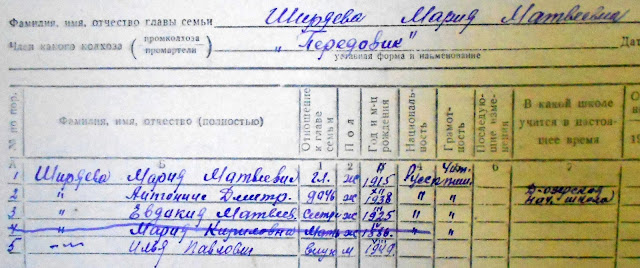 Фамилия, имя, отчество главы семьи Ширдева Марид Матвеевна
Член какого колхоза ( промколхоза промартели ) „Передовик"
уставная форма и наименование Дат
№№ по пор. Фамилия, имя, отчество (полностью) Отношение к главе семьи Пол Год и м-ц рождения Национальность Грамотность Последующие изменения В какой школе учится в настоящее время
А Б 1 2 3 4 5 6 7
1 Ширдева Марид Матвеевна гл. ж 1915 Русск
2 " Антонина Дмитр. дочь ж XII 1938 " " нач. школа
3 " Евдакид Матвеев. сестра ж 1925 " "
4 " Марид Кириловна Мать ж 1886 " "
5 —"— Ильд Павлович внук м 1949.